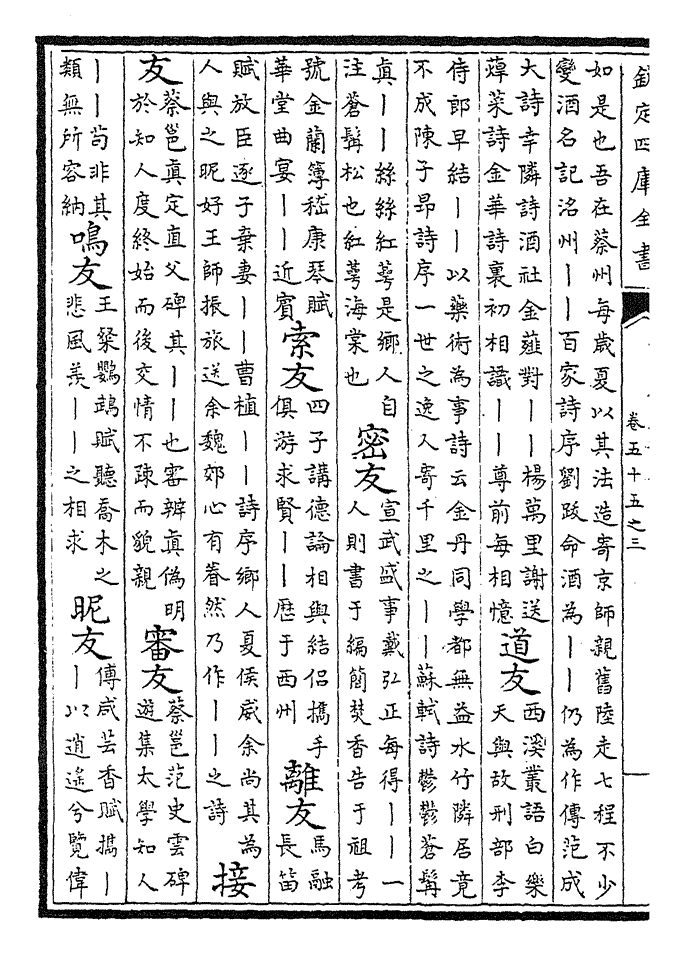 欽定四庫全書
卷五十五之三
如是也吾在蔡州每歲夏以其法造寄京師親舊陸走七程不少
變酒名記洺州丨丨百家詩序劉跂命酒為丨丨仍為作傳范成
大詩幸隣詩酒社金薤對丨丨楊萬里謝送
蓴菜詩金華詩裏初相識丨丨尊前每相憶
道友
西溪叢語白樂
天與故刑部李
侍郎早結丨丨以藥術為事詩云金丹同學都無益水竹隣居竟
不成陳子昂詩序一世之逸人寄千里之丨丨蘇軾詩鬱鬱蒼髯
真丨丨絲絲紅萼是鄉人自
注蒼髯松也紅萼海棠也
密友
宣武盛事戴弘正每得丨丨一
人則書于編簡焚香告于祖考
號金蘭簿嵇康琴賦
華堂曲宴丨丨近賓
索友
四子講德論相與結侶攜手
俱游求賢丨丨歴于西州
離友
馬融
長笛
賦放臣逐子棄妻丨丨曹植丨丨詩序鄉人夏侯威余尚其為
人與之昵好王師振旅送余魏郊心有眷然乃作丨丨之詩
接
友
蔡邕真定直父碑其丨丨也審辨真偽明
於知人度終始而後交情不疎而貌親
審友
蔡邕范史雲碑
遊集太學知人
丨丨苟非其
類無所容納
鳴友
王粲鸚鵡賦聽喬木之
悲風羨丨丨之相求
昵友
傅咸芸香賦攜丨
丨以逍遙兮覽偉